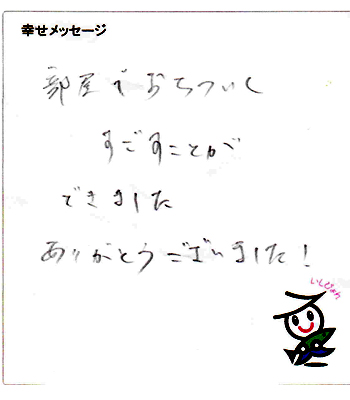 幸せメッセージ
部屋でおちついく
すごすことが
できました
ありがとうございました!